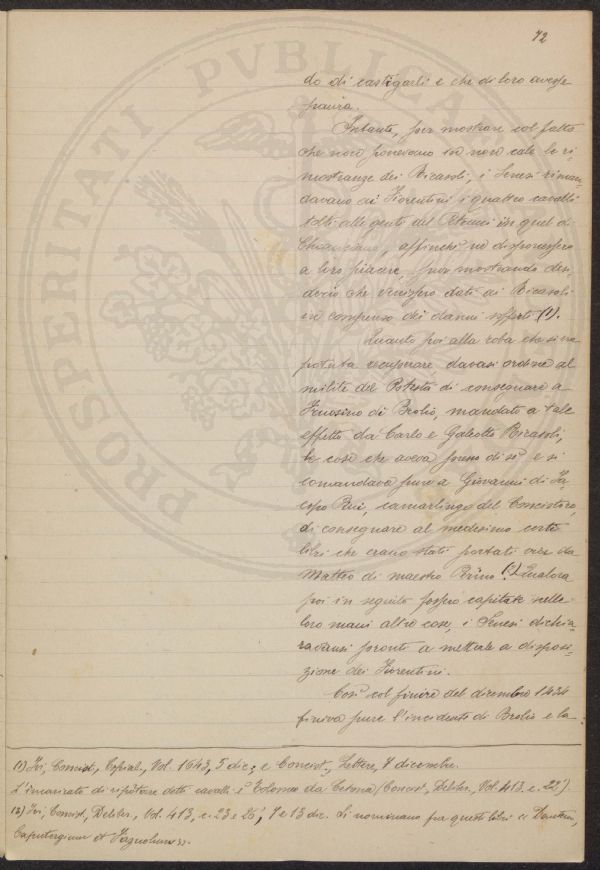 72
PROSPERITATI PVBLICAE
do di castigarli e che di loro avesse
paura.
Intanto, per mostrare col fatto
che non ponevano in non cale le ri=
mostranze dei Ricasoli, i Senesi riman=
davano ai Fiorentini i quattro cavalli
tolti alle genti del in quel di
Chianciano, affinché ne disponessero
a loro piacere, pur mostrando desi=
derio che venissero dati ai Ricasoli
in compenso dei danni sofferti (1).
Quanto poi alla roba che si era
potuta recuperare, davasi ordine al
milite del Potestà di consegnare a
di Brolio, mandato a tale
effetto da Carlo e Galeotto Ricasoli,
le cose che aveva presso di sé e si
comandava pure a Giovanni di Ja=
copo camarlingo del Concistoro,
di consegnare al medesimo certi
libri che erano stati portati ivi da
Matteo di maestro (2). Qualora
poi in seguito fossero capitate nelle
loro mani altre cose, i Senesi dichia=
ravansi pronti a metterle a disposi=
zione dei Fiorentini.
Così col finire del dicembre 1434
finiva pure l'incidente di Brolio e la
(1) Ivi, Concist., Vol. 1643, 5 dic; e Concist., Lettere, 7 dicembre.
L'incaricato di detti cavalli è da Cetona (Concist., Deliber., Vol. 413, c. 22').
(2) Ivi, Concist., Deliber., Vol. 413, c. 23 e 26', 7 e 13 dic. Si nominano fra questi libri "
et